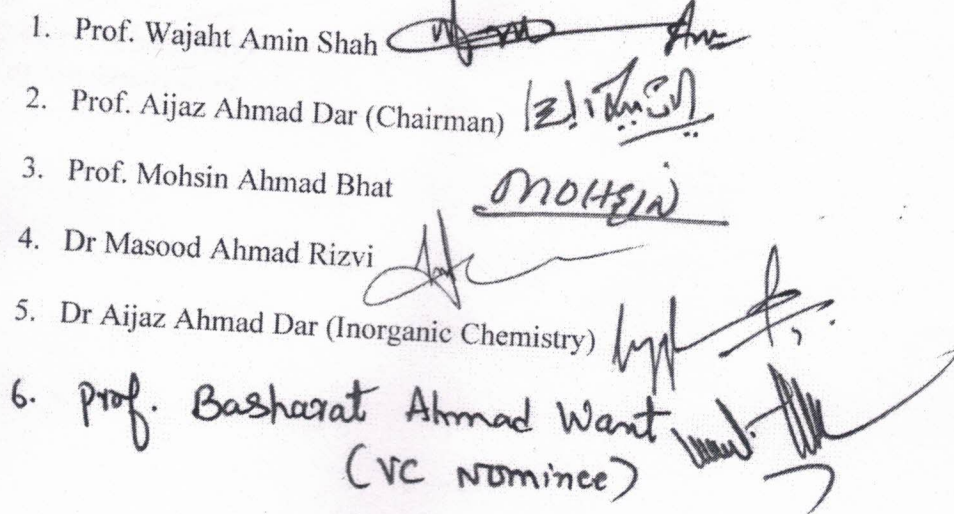 1. Prof. Wajaht Amin Shah
2. Prof. Aijaz Ahmad Dar (Chairman)
3. Prof. Mohsin Ahmad Bhat MOHSIN
4. Dr Masood Ahmad Rizvi
5. Dr Aijaz Ahmad Dar (Inorganic Chemistry)
6. Prof. Basharat Ahmad Want
(VC Nominee)